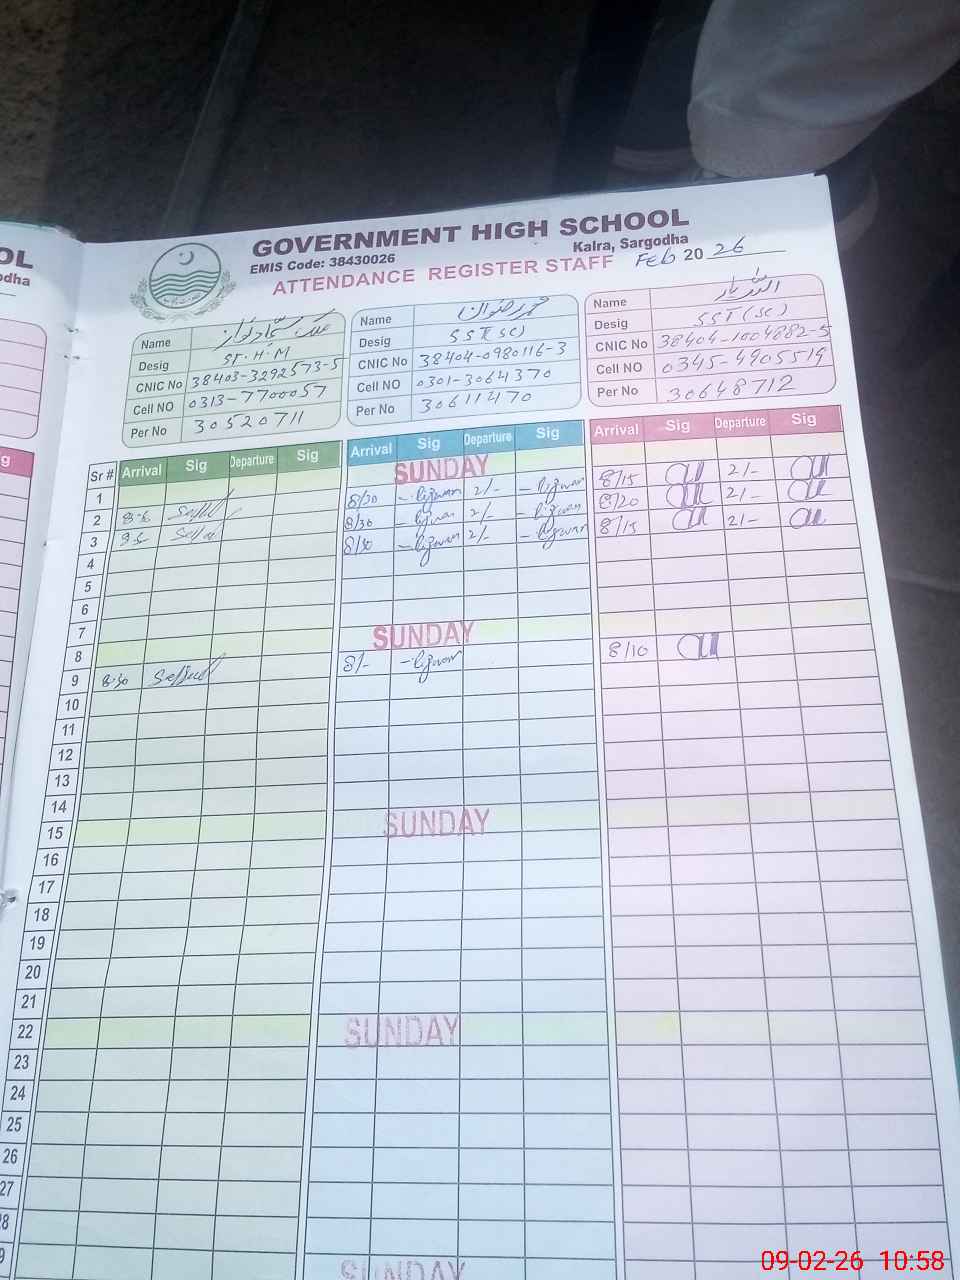 OL
dha
g
GOVERNMENT HIGH SCHOOL
Kalra, Sargodha
EMIS Code: 38430026
ATTENDANCE REGISTER STAFF Feb 2026
Name
Desig ST. H.M
CNIC No 38403-3292573-5
Cell NO 0313-7700057
Per No 30520711
Name محمد رضوان
Desig SST (SC)
CNIC No 38404-0980116-3
Cell NO 0301-3064370
Per No 30611470
Name اللہ یار
Desig SST (SC)
CNIC No 38404-1004882-5
Cell NO 0345-4905519
Per No 30648712
Sr # Arrival Sig Departure Sig Arrival Sig Departure Sig Arrival Sig Departure Sig
1 SUNDAY
2 8/30 Rizwan 2/- Rizwan 8/15 2/-
3 8/30 Rizwan 2/- Rizwan 8/20 2/-
4 8/30 Rizwan 2/- Rizwan 8/15 2/-
5
6
7
8 SUNDAY
9 8-30 8/- Rizwan 8/10
10
11
12
13
14
15 SUNDAY
16
17
18
19
20
21
22 SUNDAY
23
24
25
26
27
28
9 SUNDAY
09-02-26 10:58